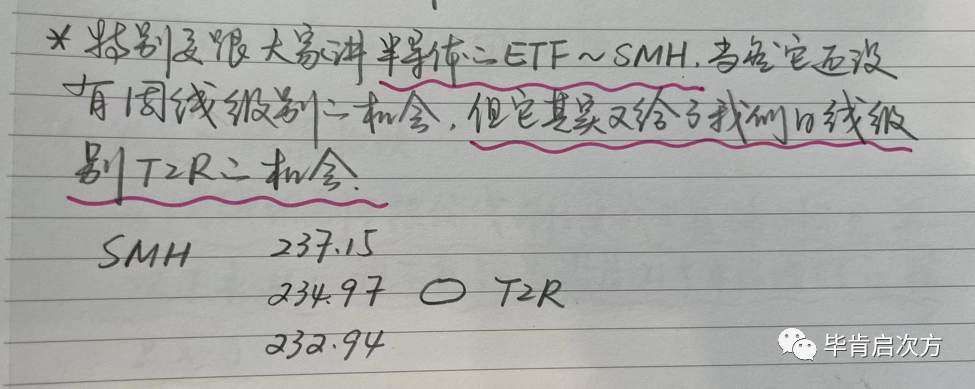 * 特别要跟大家讲半导体的ETF~SMH.当然它还没
有周线级别的机会,但它其实又给了我们日线级
别T2R的机会.
SMH 237.15
234.97 ○ T2R
232.94
毕肯启次方